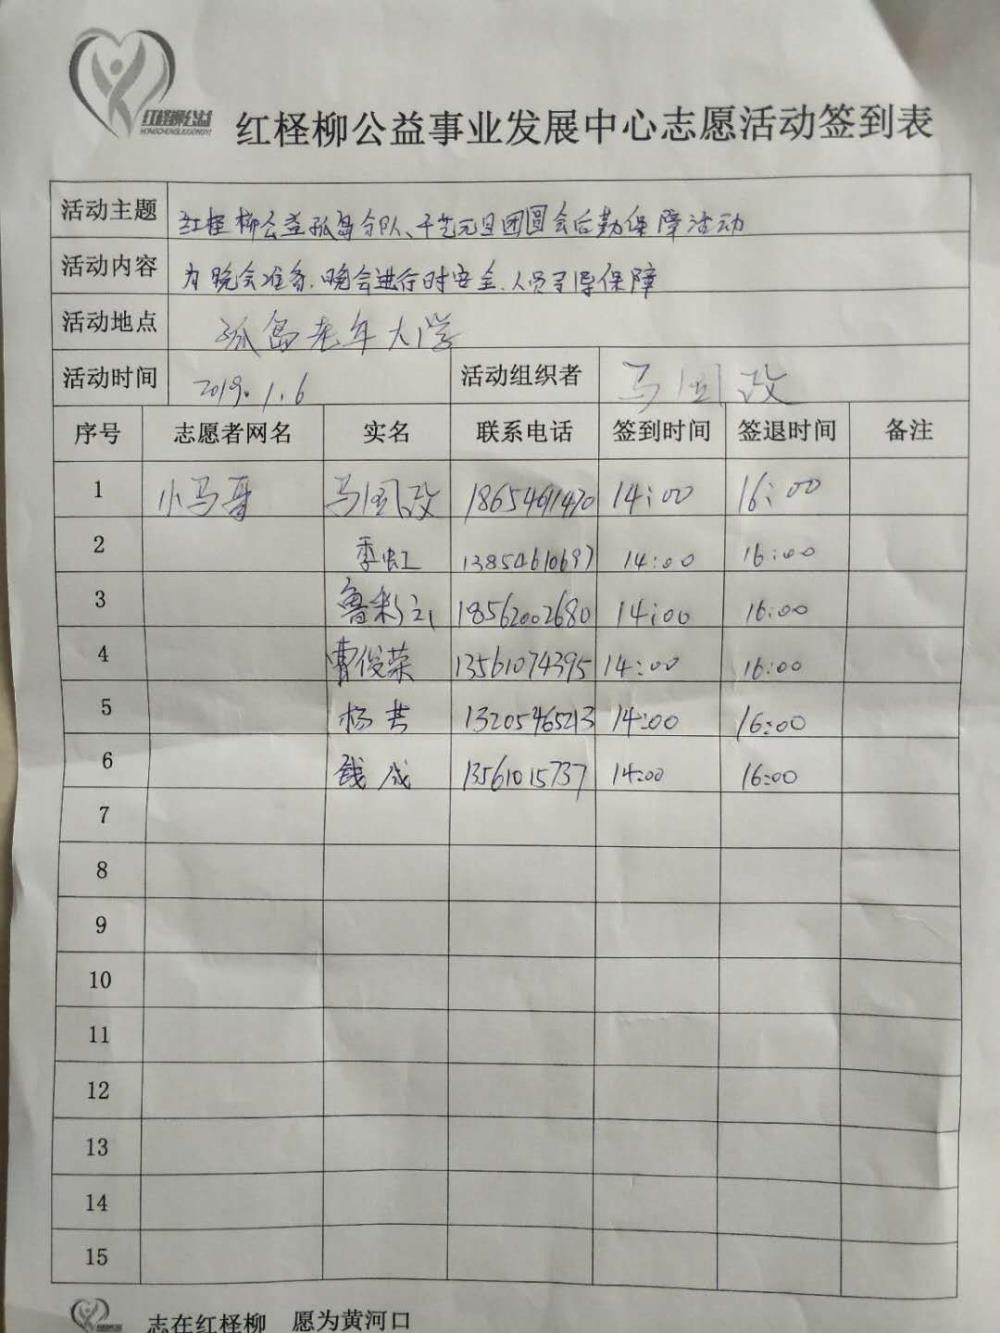 红柽柳公益
HONGCHENGLIUGONGYI
红柽柳公益事业发展中心志愿活动签到表
活动主题 红柽柳公益孤岛分队、千艺元旦团圆会后勤保障活动
活动内容 为晚会准备.晚会进行时安全.人员引导保障
活动地点 孤岛老年大学
活动时间 2019.1.6 活动组织者 马国政
序号 志愿者网名 实名 联系电话 签到时间 签退时间 备注
1 小马哥 马国政 18654691470 14:00 16:00
2 季虹 13854610697 14:00 16:00
3 鲁彩 18562002680 14:00 16:00
4 曹俊荣 13561074395 14:00 16:00
5 杨芸 13205465213 14:00 16:00
6 钱成 13561015737 14:00 16:00
7
8
9
10
11
12
13
14
15
志在红柽柳 愿为黄河口